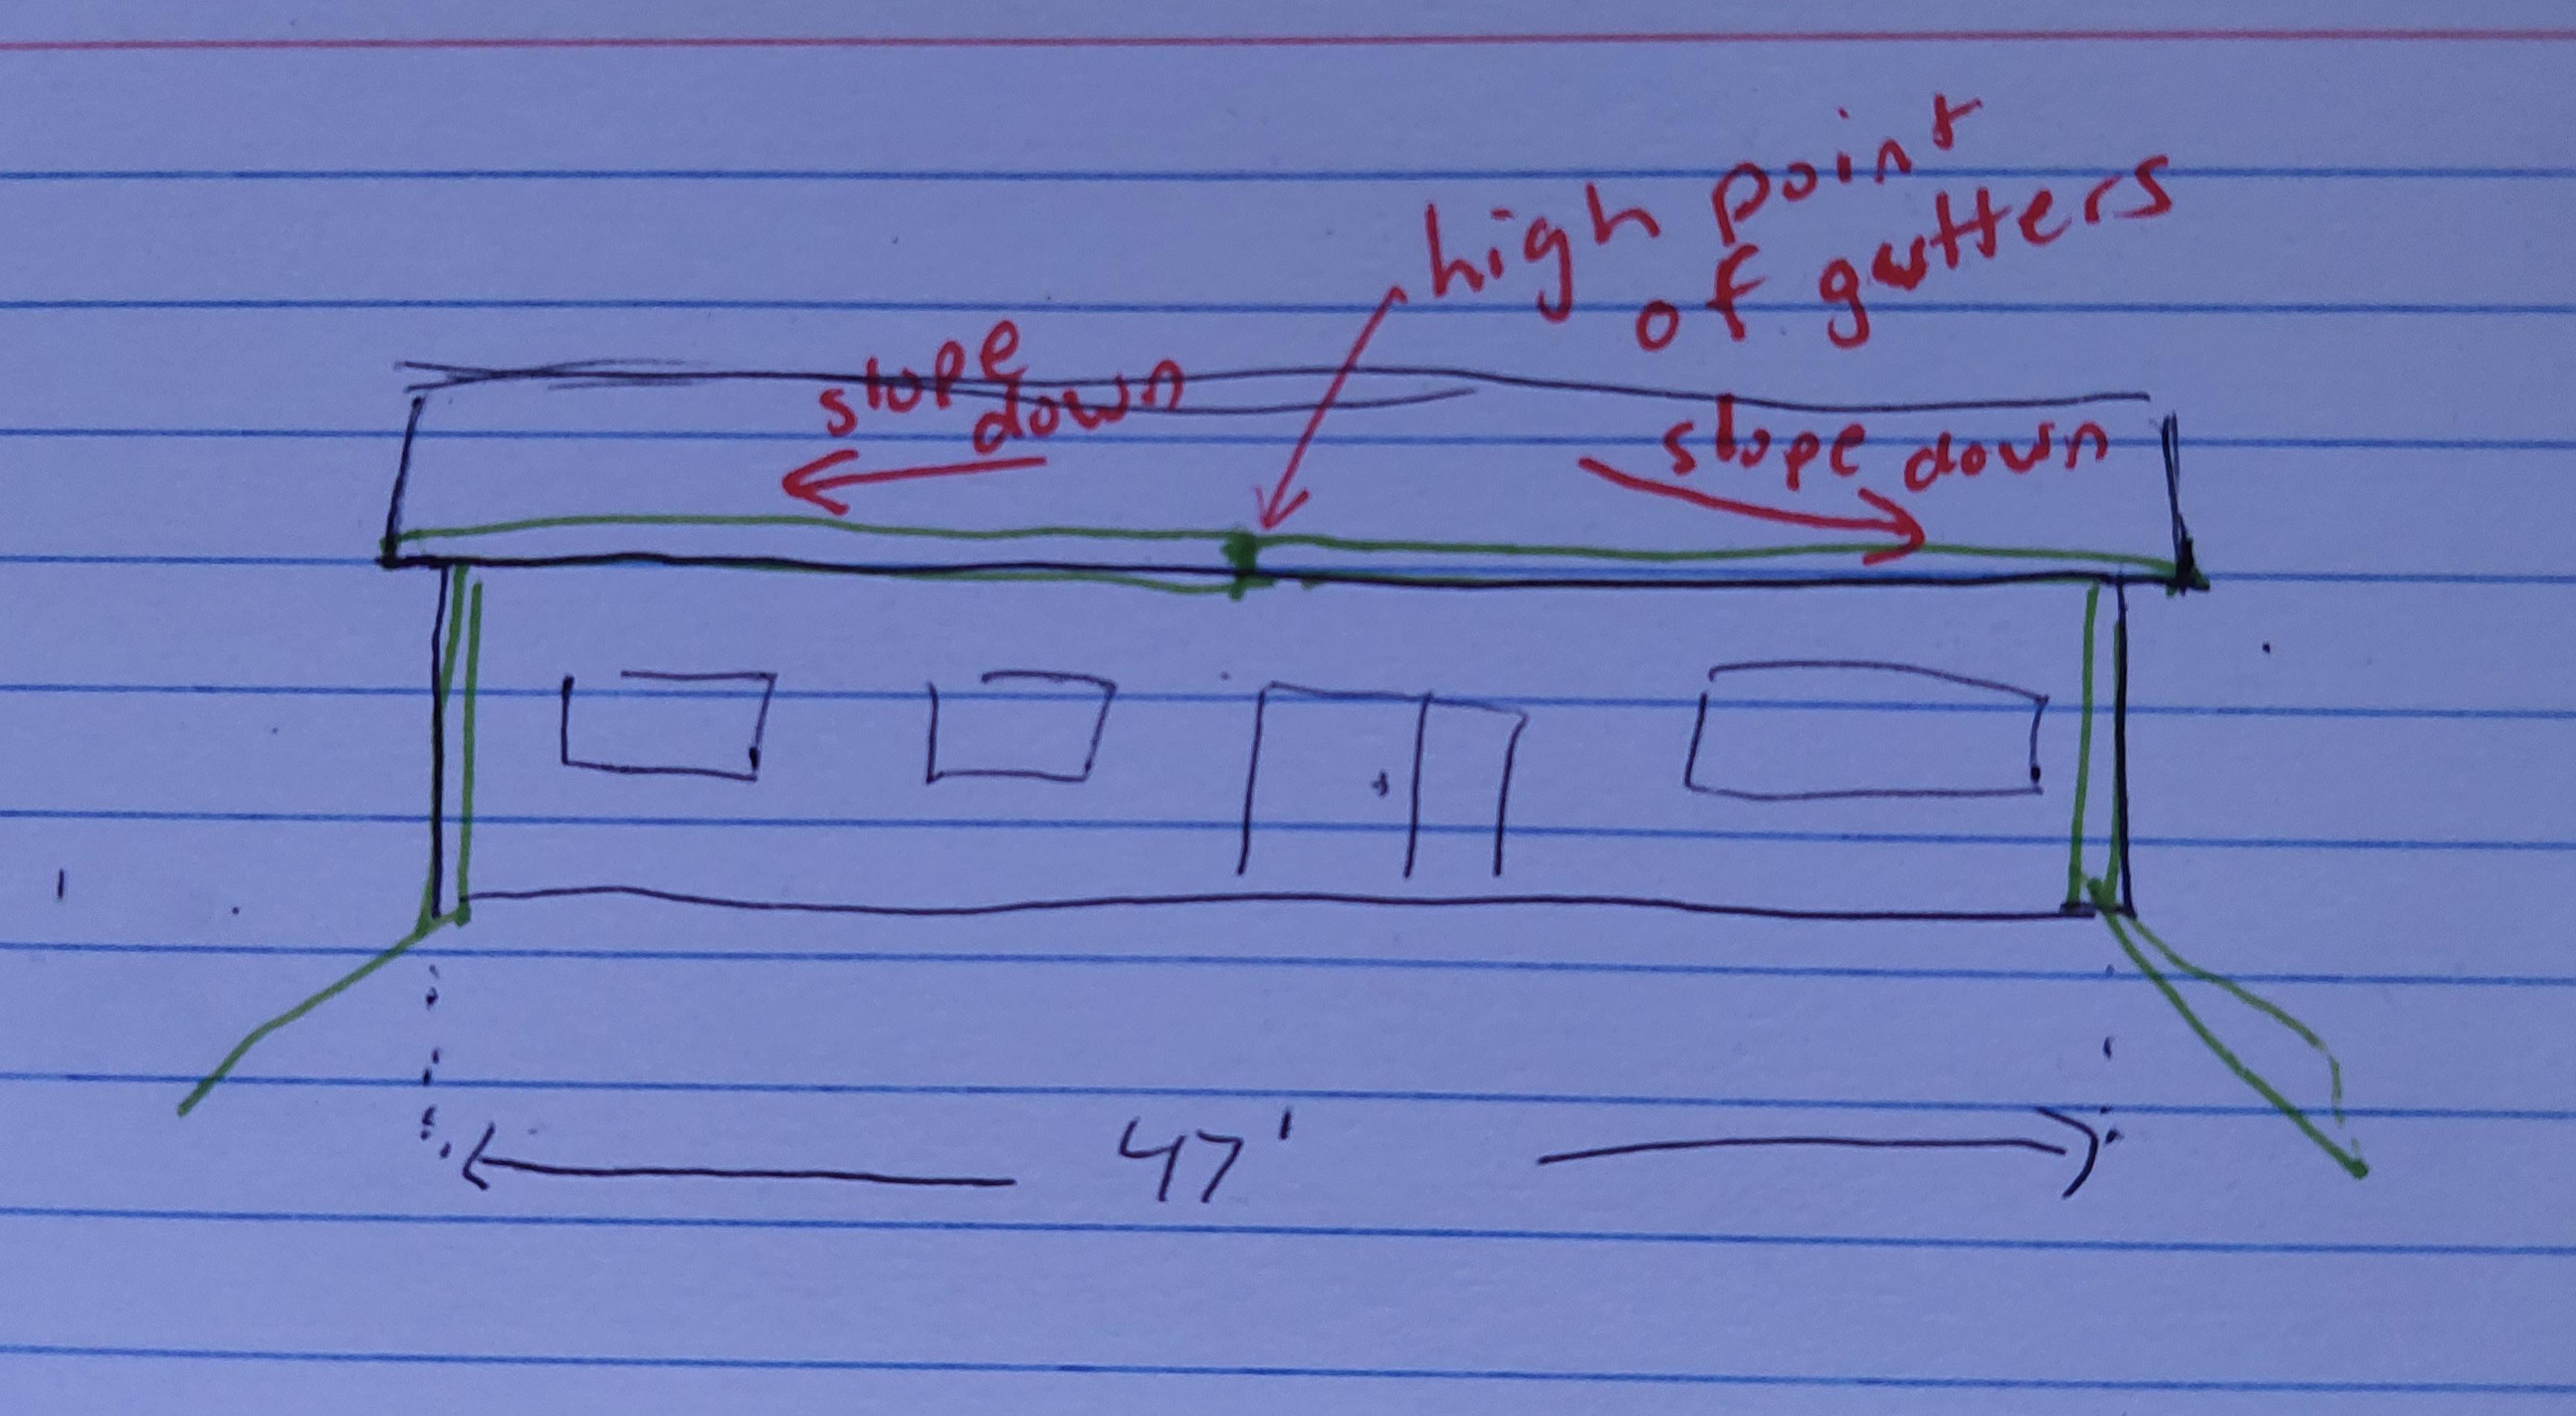 high point
of gutters
slope
down
slope down
47'